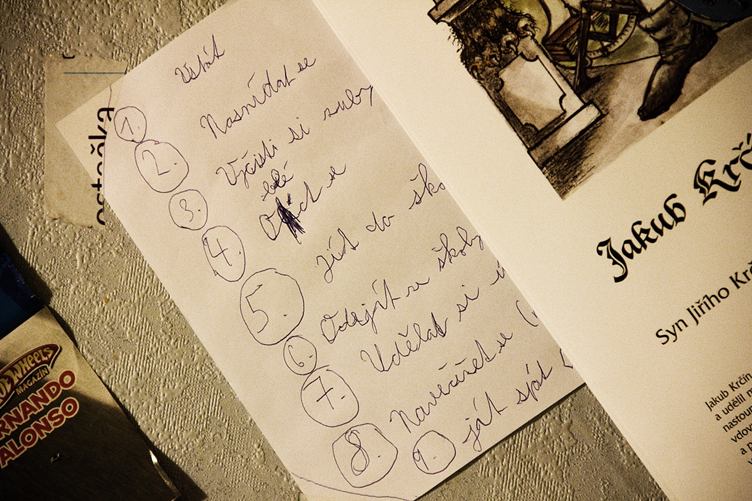 1. Vstát
2. Nasnídat se
3. Vyčisti si zuby
4. se
5. Jít do ško
6. Odejít ze školy
7. Udělat si
8. Navečeřet se (
9. jít spát (
Jakub Krčí
Syn Jiřího Krč
Jakub Krčín
a udělil
nastou
vdov
WHEELS
MAGAZÍN
ERNANDO
ALONSO